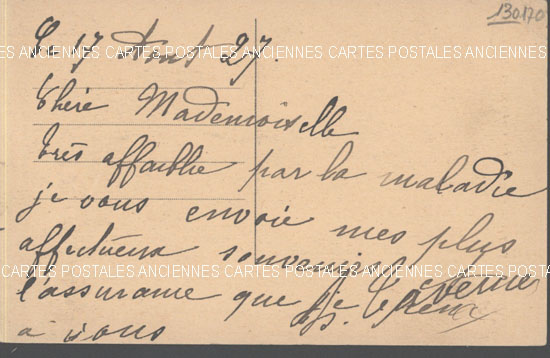 130170
Le 17 Août 27.
CARTES POSTALES ANCIENNES CARTES POSTALES ANCIENNES CARTES POSTALES ANCIENNES
Chère Mademoiselle
très affaiblie par la maladie
je vous envoie mes plus
affectueux souvenirs
CARTES POSTALES ANCIENNES CARTES POSTALES ANCIENNES CARTES POSTALES ANCIENNES
l'assurance que je
à vous